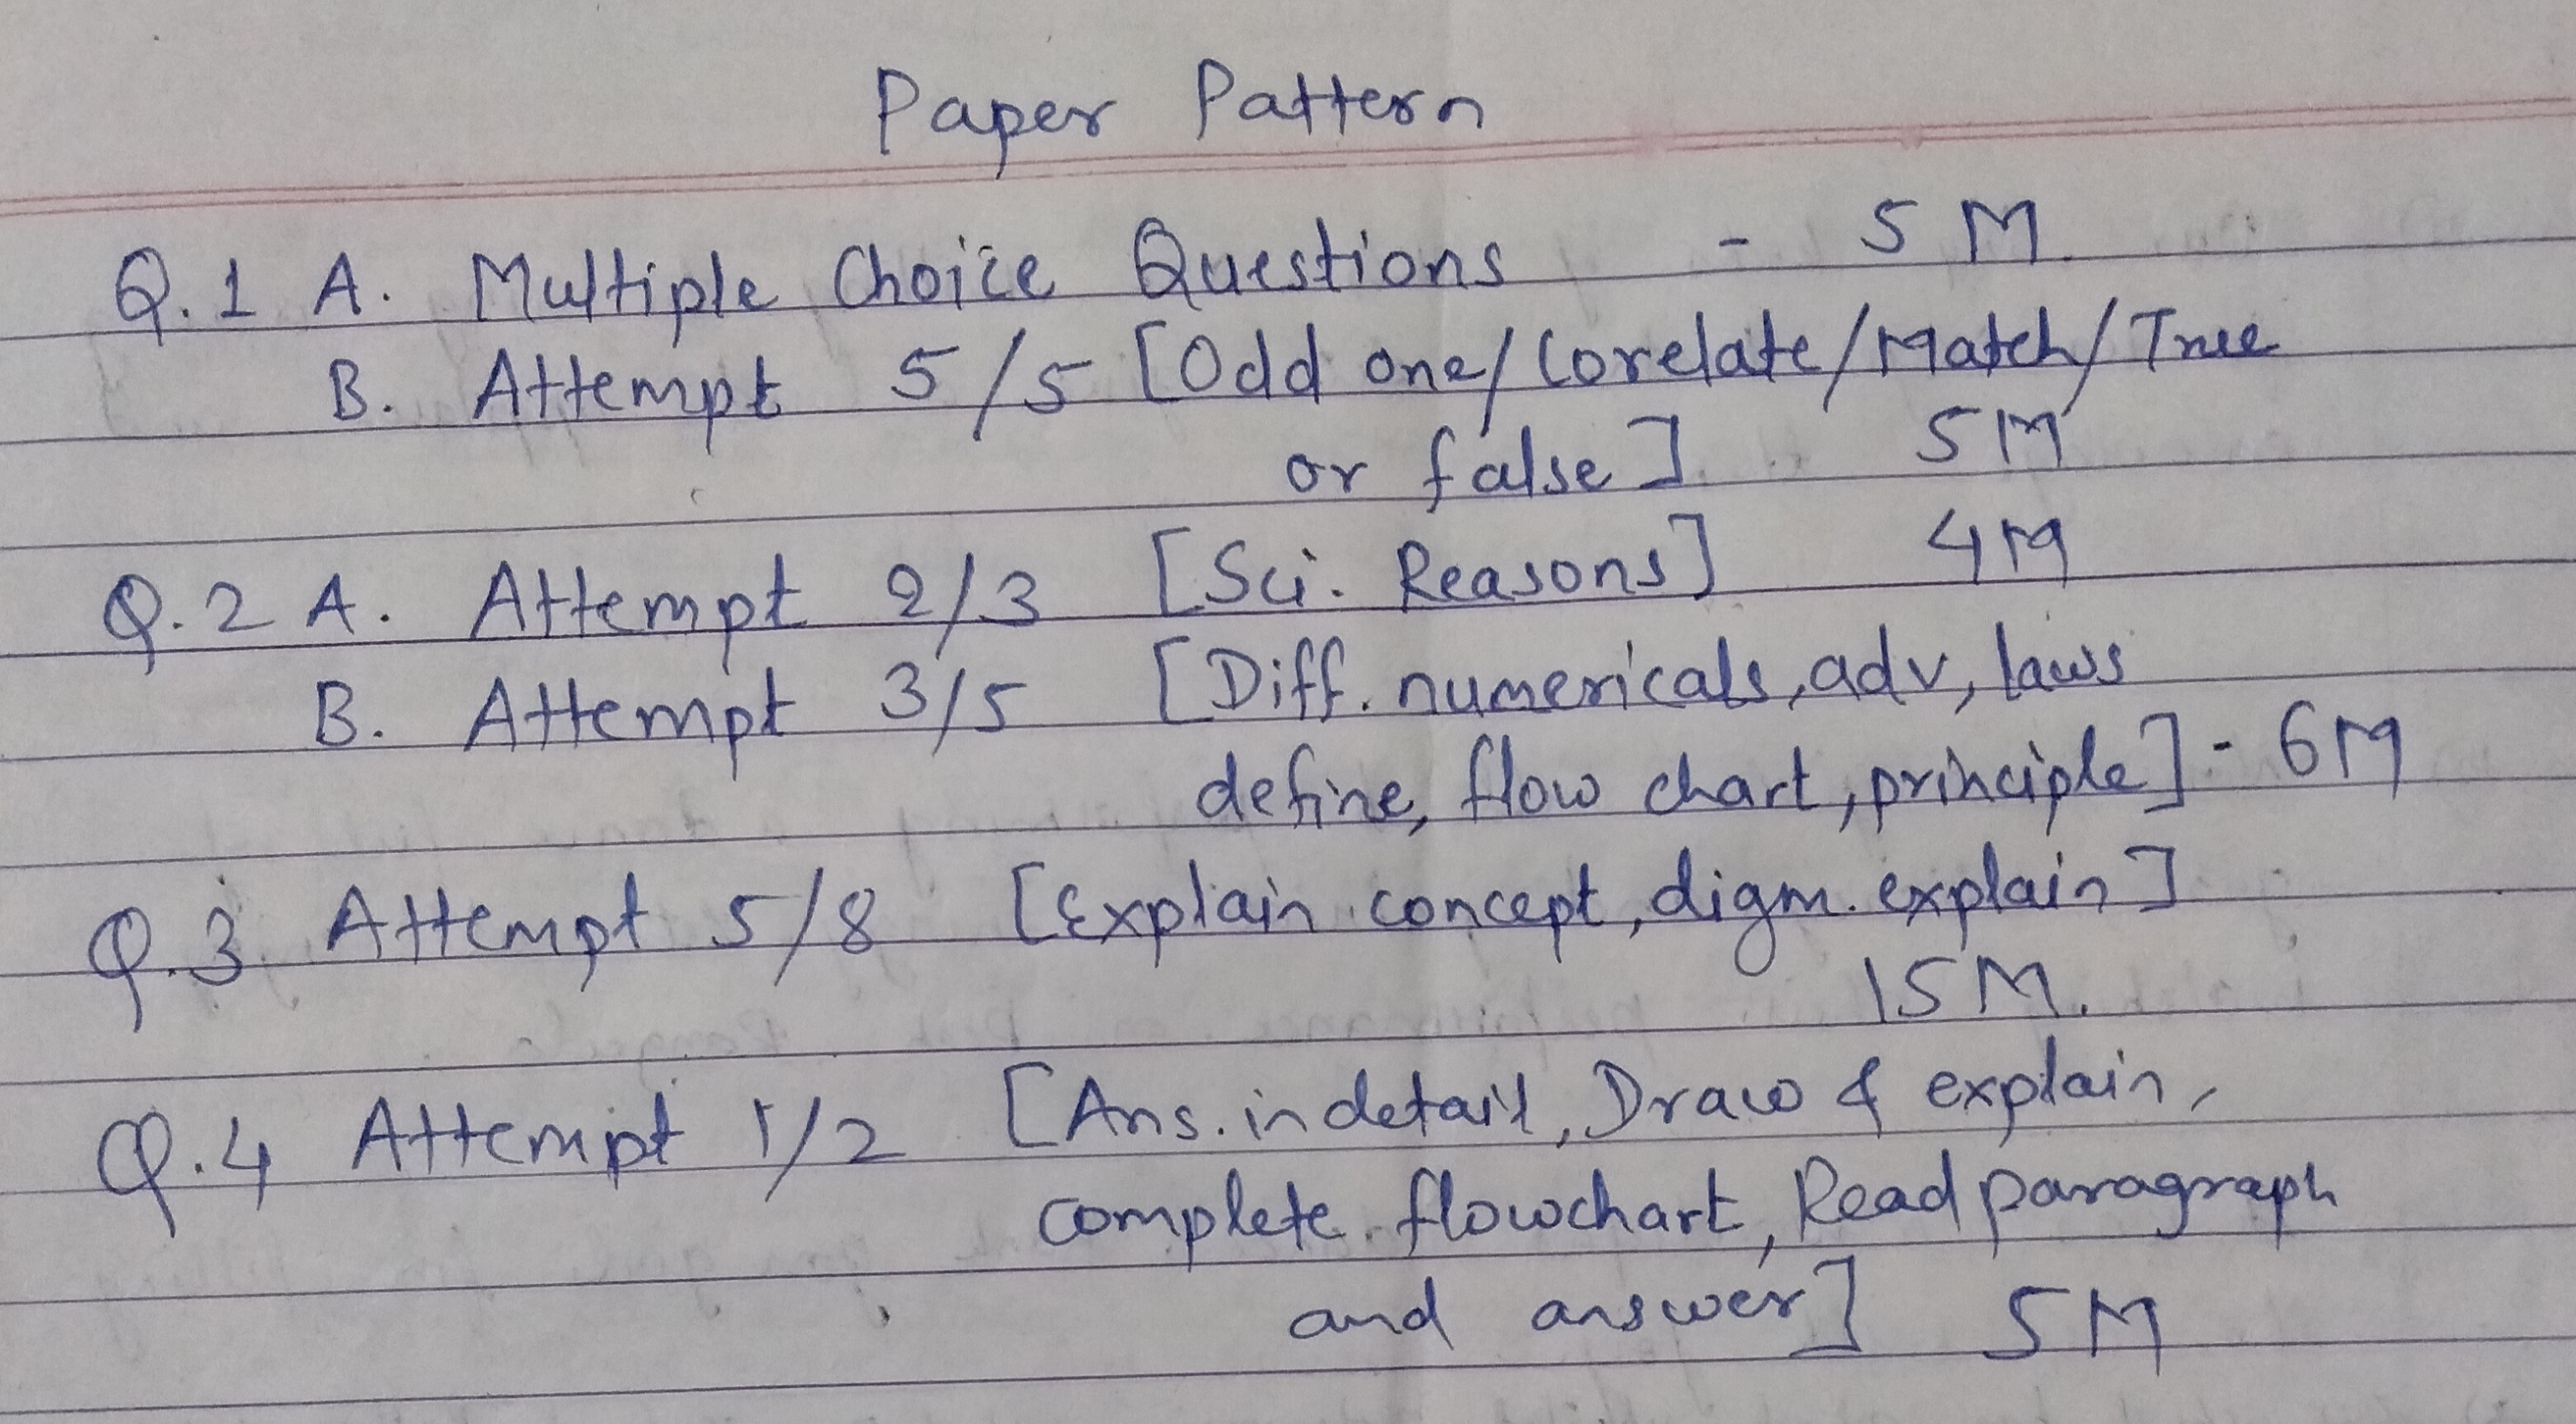 Paper Pattern
Q.1 A. Multiple Choice Questions - 5 M
B. Attempt 5/5 [Odd one/Corelate/Match/True
or false] 5M
Q.2 A. Attempt 2/3 [Sci. Reasons] 4M
B. Attempt 3/5 [Diff. numericals, adv, laws
define, flow chart, principle] - 6M
Q.3 Attempt 5/8 [Explain concept, digm. explain]
15M.
Q.4 Attempt 1/2 [Ans. in detail, Draw & explain,
complete flowchart, Read paragraph
and answer] 5M